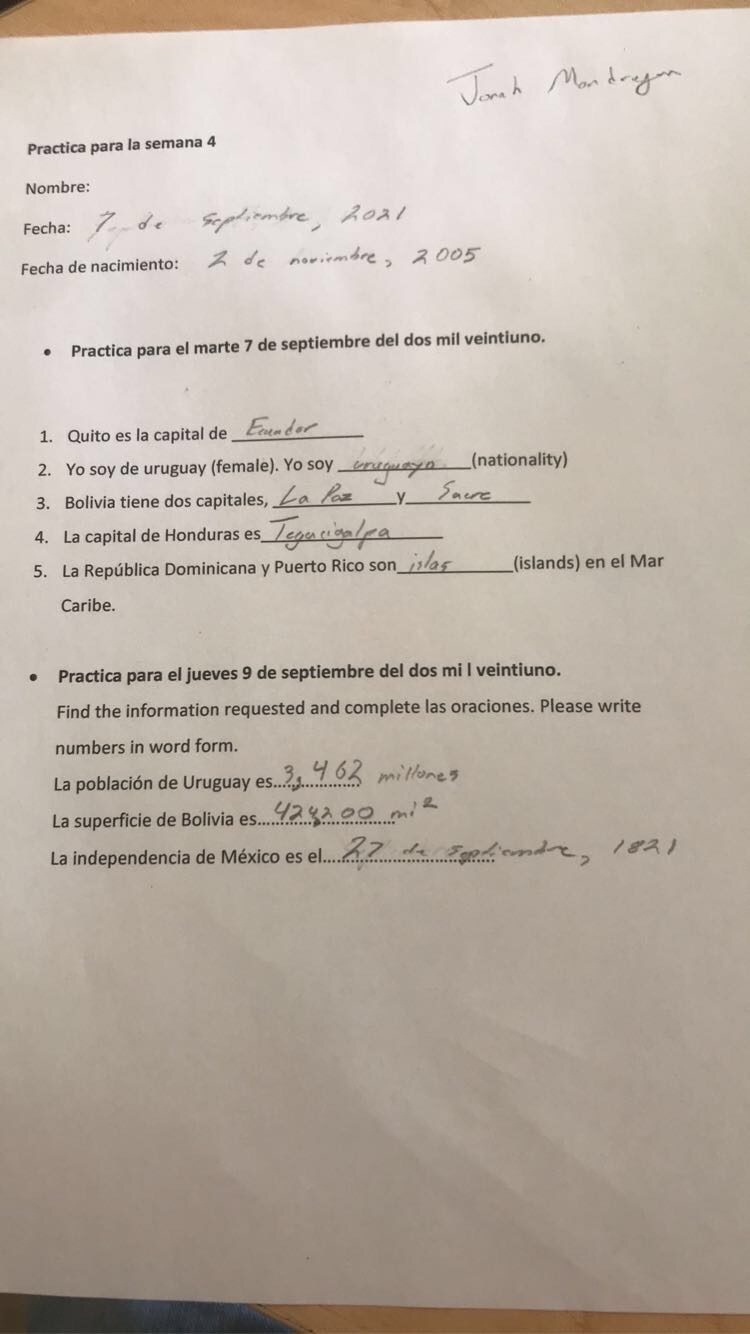 Jonah Mondragon
Practica para la semana 4
Nombre:
Fecha: 7 de septiembre, 2021
Fecha de nacimiento: 2 de noviembre, 2005
• Practica para el marte 7 de septiembre del dos mil veintiuno.
1. Quito es la capital de Ecuador
2. Yo soy de uruguay (female). Yo soy uruguaya (nationality)
3. Bolivia tiene dos capitales, La Paz y Sucre
4. La capital de Honduras es Tegucigalpa
5. La República Dominicana y Puerto Rico son islas (islands) en el Mar
Caribe.
• Practica para el jueves 9 de septiembre del dos mi l veintiuno.
Find the information requested and complete las oraciones. Please write
numbers in word form.
La población de Uruguay es...3,462 millones
La superficie de Bolivia es...424,200 mi²
La independencia de México es el....27 de septiembre, 1821